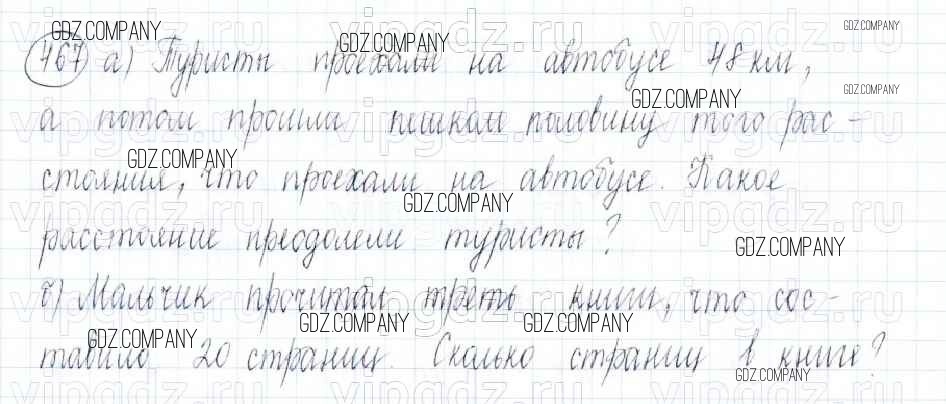 467 а) Туристы проехали на автобусе 48 км,
а потом прошли пешком половину того рас-
стояния, что проехали на автобусе. Какое
расстояние преодолели туристы?
б) Мальчик прочитал треть книги, что сос-
тавило 20 страниц. Сколько страниц в книге?
GDZ.COMPANY
GDZ.COMPANY
GDZ.COMPANY
GDZ.COMPANY
GDZ.COMPANY
GDZ.COMPANY
GDZ.COMPANY
GDZ.COMPANY
GDZ.COMPANY
GDZ.COMPANY
GDZ.COMPANY
GDZ.COMPANY
vipgdz.ru
vipgdz.ru
vipgdz.ru
vipgdz.ru